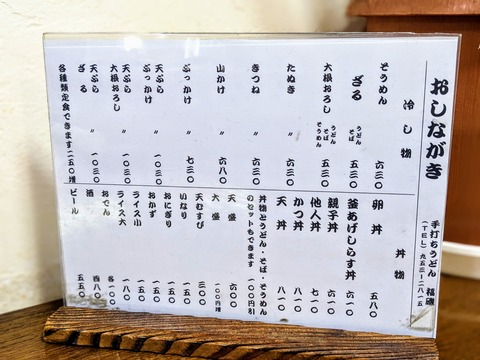 おしながき
手打ちうどん 福磯
(TEL)九五三-二八一五
冷し物
そうめん 六三〇
ざる うどん そば 五三〇
大根おろし うどん そば そうめん 六三〇
たぬき 〃 六三〇
きつね 〃 六三〇
山かけ 〃 六八〇
ぶっかけ 〃 七三〇
天ぷら ぶっかけ 〃 一〇三〇
天ぷら 大根おろし 〃 一〇三〇
天ぷら ざる 〃 一〇三〇
各種類定食できます 二五〇増
丼物
卵丼 五八〇
釜あげしらす丼 六一〇
親子丼 六一〇
他人丼 七一〇
かつ丼 八一〇
天丼 八一〇
丼物とうどん・そば・そうめん
のセットもできます 一〇〇円引
天盛 六〇〇
大盛 一〇〇円増
天むすび 三〇〇
いなり 一五〇
おにぎり 一五〇
おかず 一五〇
ライス小 一五〇
ライス大 一八〇
おでん 各一〇〇
酒 四八〇
ビール 五五〇